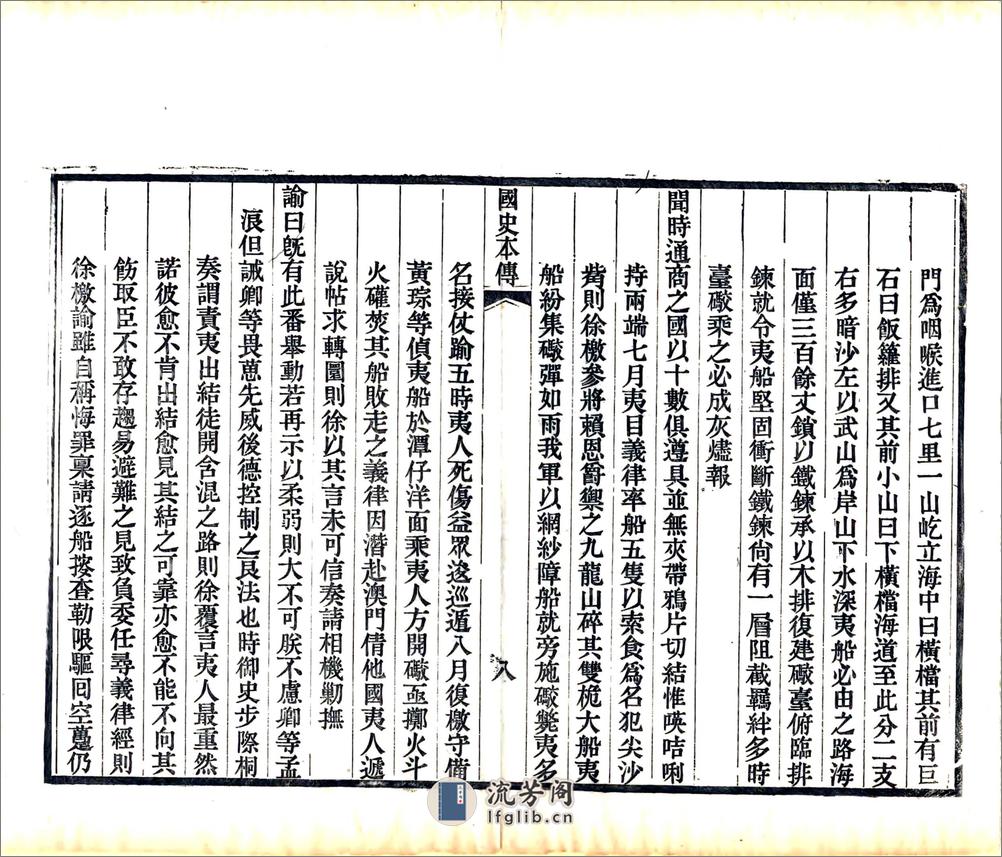 門爲咽喉進口七里一山屹立海中曰橫檔其前有巨
石曰飯籮排又其前小山曰下橫檔海道至此分二支
右多暗沙左以武山爲岸山下水深夷船必由之路海
面僅三百餘丈鎖以鐵鍊承以木排復建礮臺俯臨排
鍊就令夷船堅固衝斷鐵鍊尙有一層阻截羈絆多時
臺礮乘之必成灰燼報
聞時通商之國以十數俱遵具並無夾帶鴉片切結惟𠸄咭唎
持兩端七月夷目義律率船五隻以索食爲名犯尖沙
觜則徐檄參將賴恩爵禦之九龍山碎其雙桅大船夷
船紛集礮彈如雨我軍以網紗障船就旁施礮斃夷多
國史本傳
八
名接仗踰五時夷人死傷益眾逡巡遁八月復檄守備
黃琮等偵夷船於潭仔洋面乘夷人方開礮亟擲火斗
火礶焚其船敗走之義律因潛赴澳門倩他國夷人遞
說帖求轉圜則徐以其言未可信奏請相機勦撫
諭曰旣有此番舉動若再示以柔弱則大不可朕不慮卿等孟
浪但誡卿等畏葸先威後德控制之良法也時御史步際桐
奏謂責夷出結徒開含混之路則徐覆言夷人最重然
諾彼愈不肯出結愈見其結之可靠亦愈不能不向其
飭取臣不敢存趨易避難之見致負委任尋義律經則
徐檄諭雖自稱悔罪稟請逐船搜查勒限驅回空躉仍
流芳阁
lfglib.cn